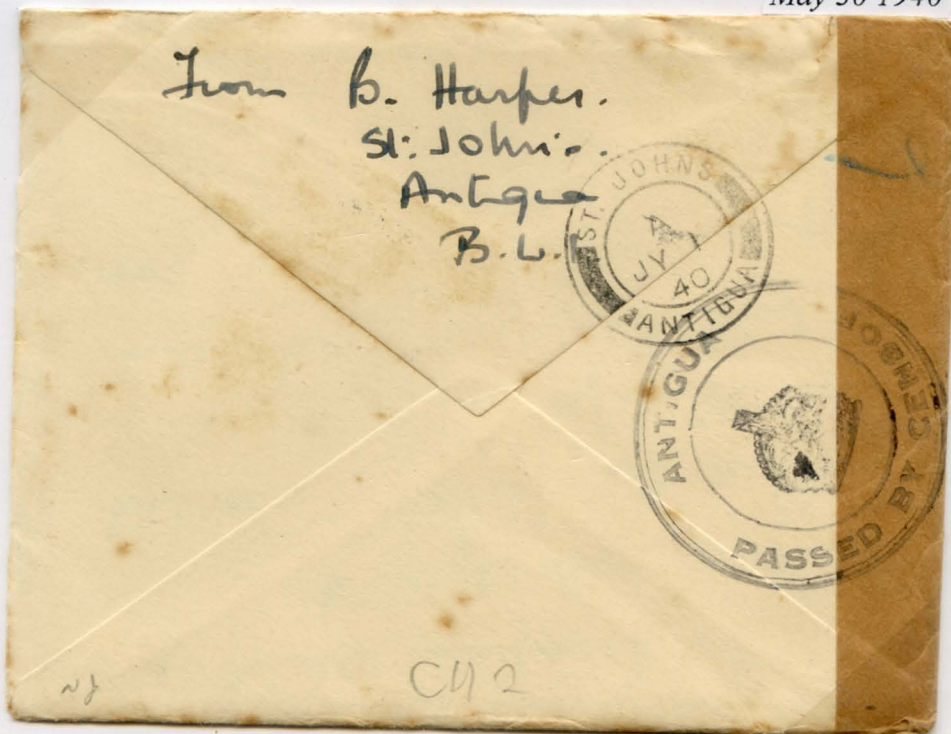 May 30 1940
From B. Harper.
St. John's.
Antigua
B.W.I
ST. JOHNS
A
JY
40
ANTIGUA
ANTIGUA
PASSED BY CENSOR